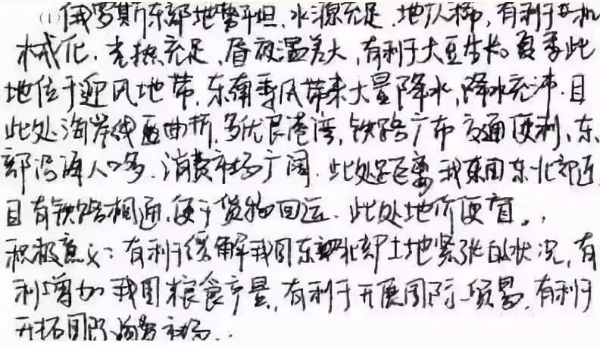 (1)俄罗斯东部地势平坦,水源充足,地广人稀,有利于农机
械化.光热充足,昼夜温差大,有利于大豆生长。夏季此
地位于迎风地带,东南季风带来大量降水,降水充沛.且
此处海岸线曲折,多优良港湾,铁路广布交通便利、东
部沿海人口多.消费市场广阔.此处距离我国东北部近
且有铁路相通,便于货物回运.此处地价便宜。
积极意义:有利于缓解我国东北部土地紧张的状况,有
利增加我国粮食产量,有利于开展国际贸易.有利于
开拓国际消费市场..